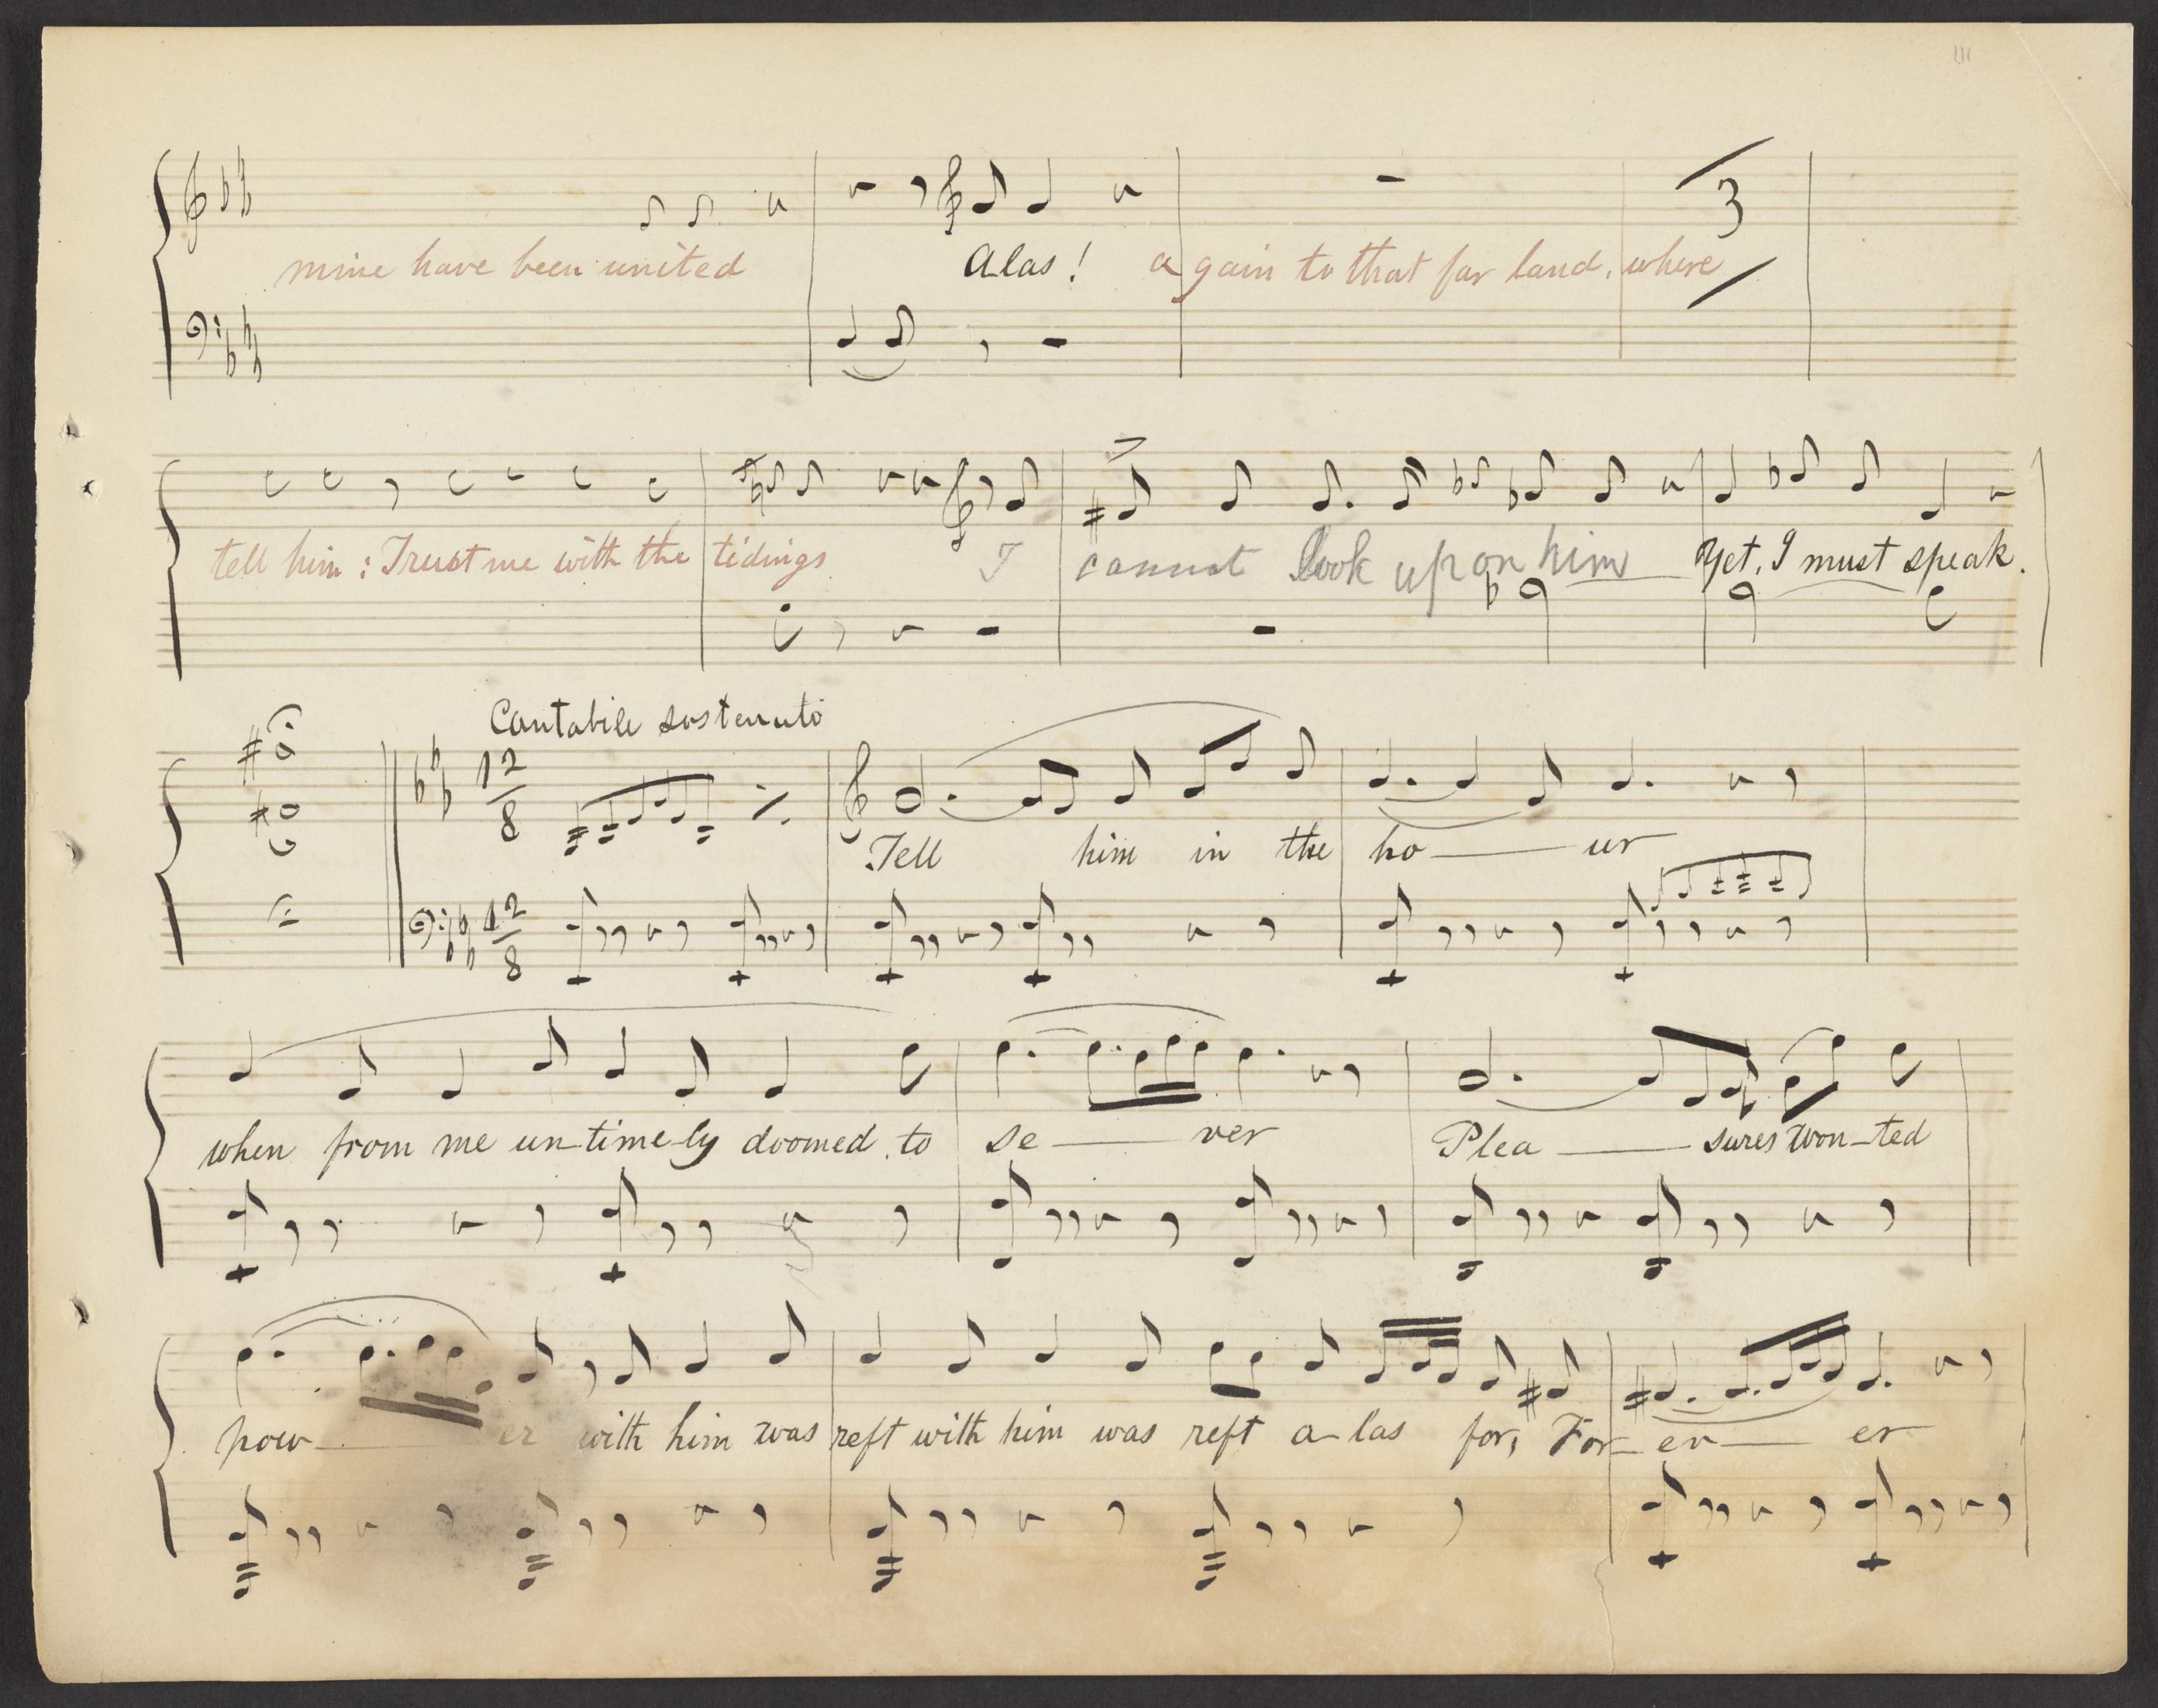 mine have been united Alas! a gain to that far land, where 3
tell him: Trust me with the tidings I cannot look upon him Yet, I must speak.
Cantabile sostenuto
12/8
Tell him in the ho — ur
12/8
when from me un-time-ly doomed to se — ver Plea — sures won-ted
pow — er with him was reft with him was reft a-las for, For-ev — er